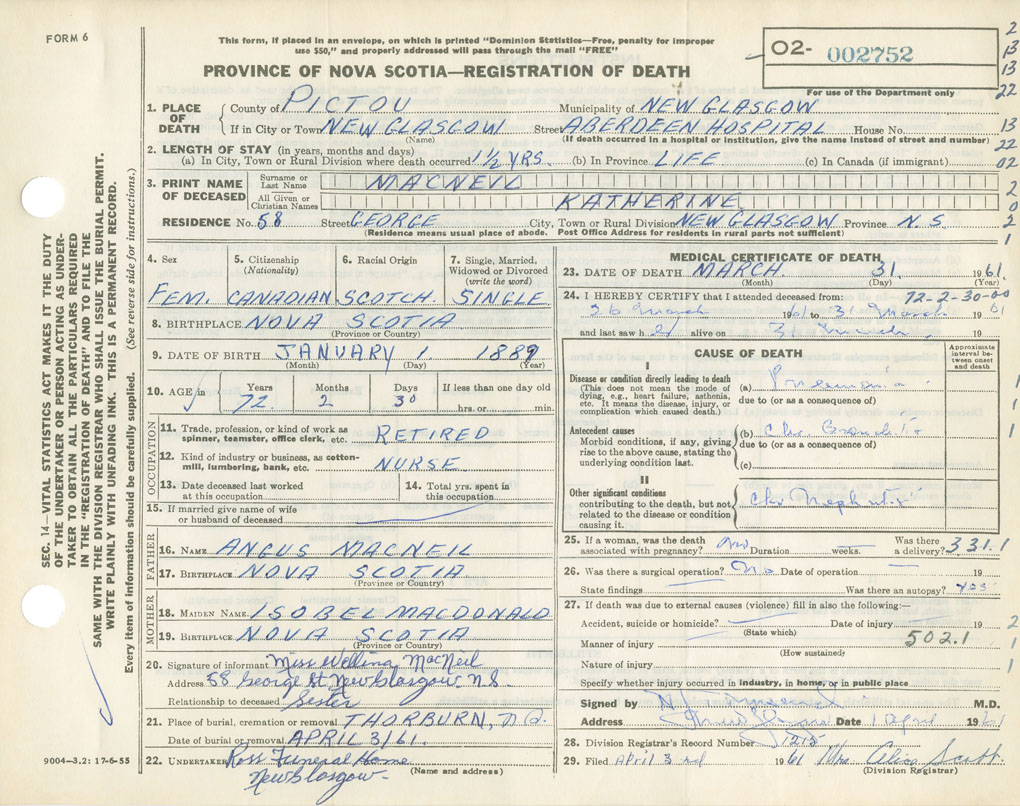 FORM 6
This form, if placed in an envelope, on which is printed "Dominion Statistics—Free, penalty for improper
use $50," and properly addressed will pass through the mail "FREE"
PROVINCE OF NOVA SCOTIA—REGISTRATION OF DEATH
02- 002752
For use of the Department only
2
13
13
22
13
22
02
2
0
2
1
1. PLACE OF DEATH County of PICTOU Municipality of NEW GLASGOW
If in City or Town NEW GLASGOW Street ABERDEEN HOSPITAL House No.
(Name) (If death occurred in a hospital or institution, give the name instead of street and number)
2. LENGTH OF STAY (in years, months and days)
(a) In City, Town or Rural Division where death occurred 1½ YRS. (b) In Province LIFE (c) In Canada (if immigrant)
3. PRINT NAME OF DECEASED Surname or Last Name MACNEIL
All Given or Christian Names KATHERINE
RESIDENCE No. 58 Street GEORGE City, Town or Rural Division NEW GLASGOW Province N.S
(Residence means usual place of abode. Post Office Address for residents in rural parts not sufficient)
4. Sex FEM.
5. Citizenship (Nationality) CANADIAN
6. Racial Origin SCOTCH
7. Single, Married, Widowed or Divorced (write the word) SINGLE
8. BIRTHPLACE NOVA SCOTIA
(Province or Country)
9. DATE OF BIRTH JANUARY 1 1889
(Month) (Day) (Year)
10. AGE in Years Months Days If less than one day old
72. 2 30 hrs. or min.
OCCUPATION
11. Trade, profession, or kind of work as
spinner, teamster, office clerk, etc. RETIRED
12. Kind of industry or business, as cotton-
mill, lumbering, bank, etc. NURSE
13. Date deceased last worked
at this occupation
14. Total yrs. spent in
this occupation
15. If married give name of wife
or husband of deceased
FATHER
16. NAME ANGUS MACNEIL
17. BIRTHPLACE NOVA SCOTIA
(Province or Country)
MOTHER
18. MAIDEN NAME ISOBEL MACDONALD
19. BIRTHPLACE NOVA SCOTIA
(Province or Country)
20. Signature of informant Miss Wellina MacNeil
Address 58 George St New Glasgow N.S.
Relationship to deceased Sister
21. Place of burial, cremation or removal THORBURN,
Date of burial or removal APRIL 3/61.
22. UNDERTAKER Ross Funeral Home
New Glasgow
(Name and address)
MEDICAL CERTIFICATE OF DEATH
23. DATE OF DEATH MARCH 31. 1961.
(Month) (Day) (Year)
72-2-30-00
24. I HEREBY CERTIFY that I attended deceased from:
26 March 1961 to 31 March 1961
and last saw h alive on 31 March 19
CAUSE OF DEATH
Approximate interval between onset and death
I
Disease or condition directly leading to death
(This does not mean the mode of
dying, e.g., heart failure, asthenia,
etc. It means the disease, injury, or
complication which caused death.)
(a) Pneumonia
due to (or as a consequence of)
Antecedent causes
Morbid conditions, if any, giving
rise to the above cause, stating the
underlying condition last.
(b) Chr Bronchitis
due to (or as a consequence of)
(c)
II
Other significant conditions
contributing to the death, but not
related to the disease or condition
causing it.
Chr Nephritis
1
1
1
25. If a woman, was the death
associated with pregnancy? no Duration weeks. Was there
a delivery? 331.1
26. Was there a surgical operation? No Date of operation 19
State findings Was there an autopsy? yes
27. If death was due to external causes (violence) fill in also the following:—
Accident, suicide or homicide? Date of injury 19
(State which)
Manner of injury 502.1
(How sustained)
Nature of injury
Specify whether injury occurred in industry, in home, or in public place
2
1
1
Signed by M.D.
Address Date 1 April 1961
28. Division Registrar's Record Number 1215
29. Filed April 3rd 1961 Mrs Alice Scott
(Division Registrar)
SEC. 14—VITAL STATISTICS ACT MAKES IT THE DUTY
OF THE UNDERTAKER OR PERSON ACTING AS UNDER-
TAKER TO OBTAIN ALL THE PARTICULARS REQUIRED
IN THE "REGISTRATION OF DEATH" AND TO FILE THE
SAME WITH THE DIVISION REGISTRAR WHO SHALL ISSUE THE BURIAL PERMIT.
WRITE PLAINLY WITH UNFADING INK. THIS IS A PERMANENT RECORD.
Every item of information should be carefully supplied. (See reverse side for instructions.)
9004-3.2: 17-6-55